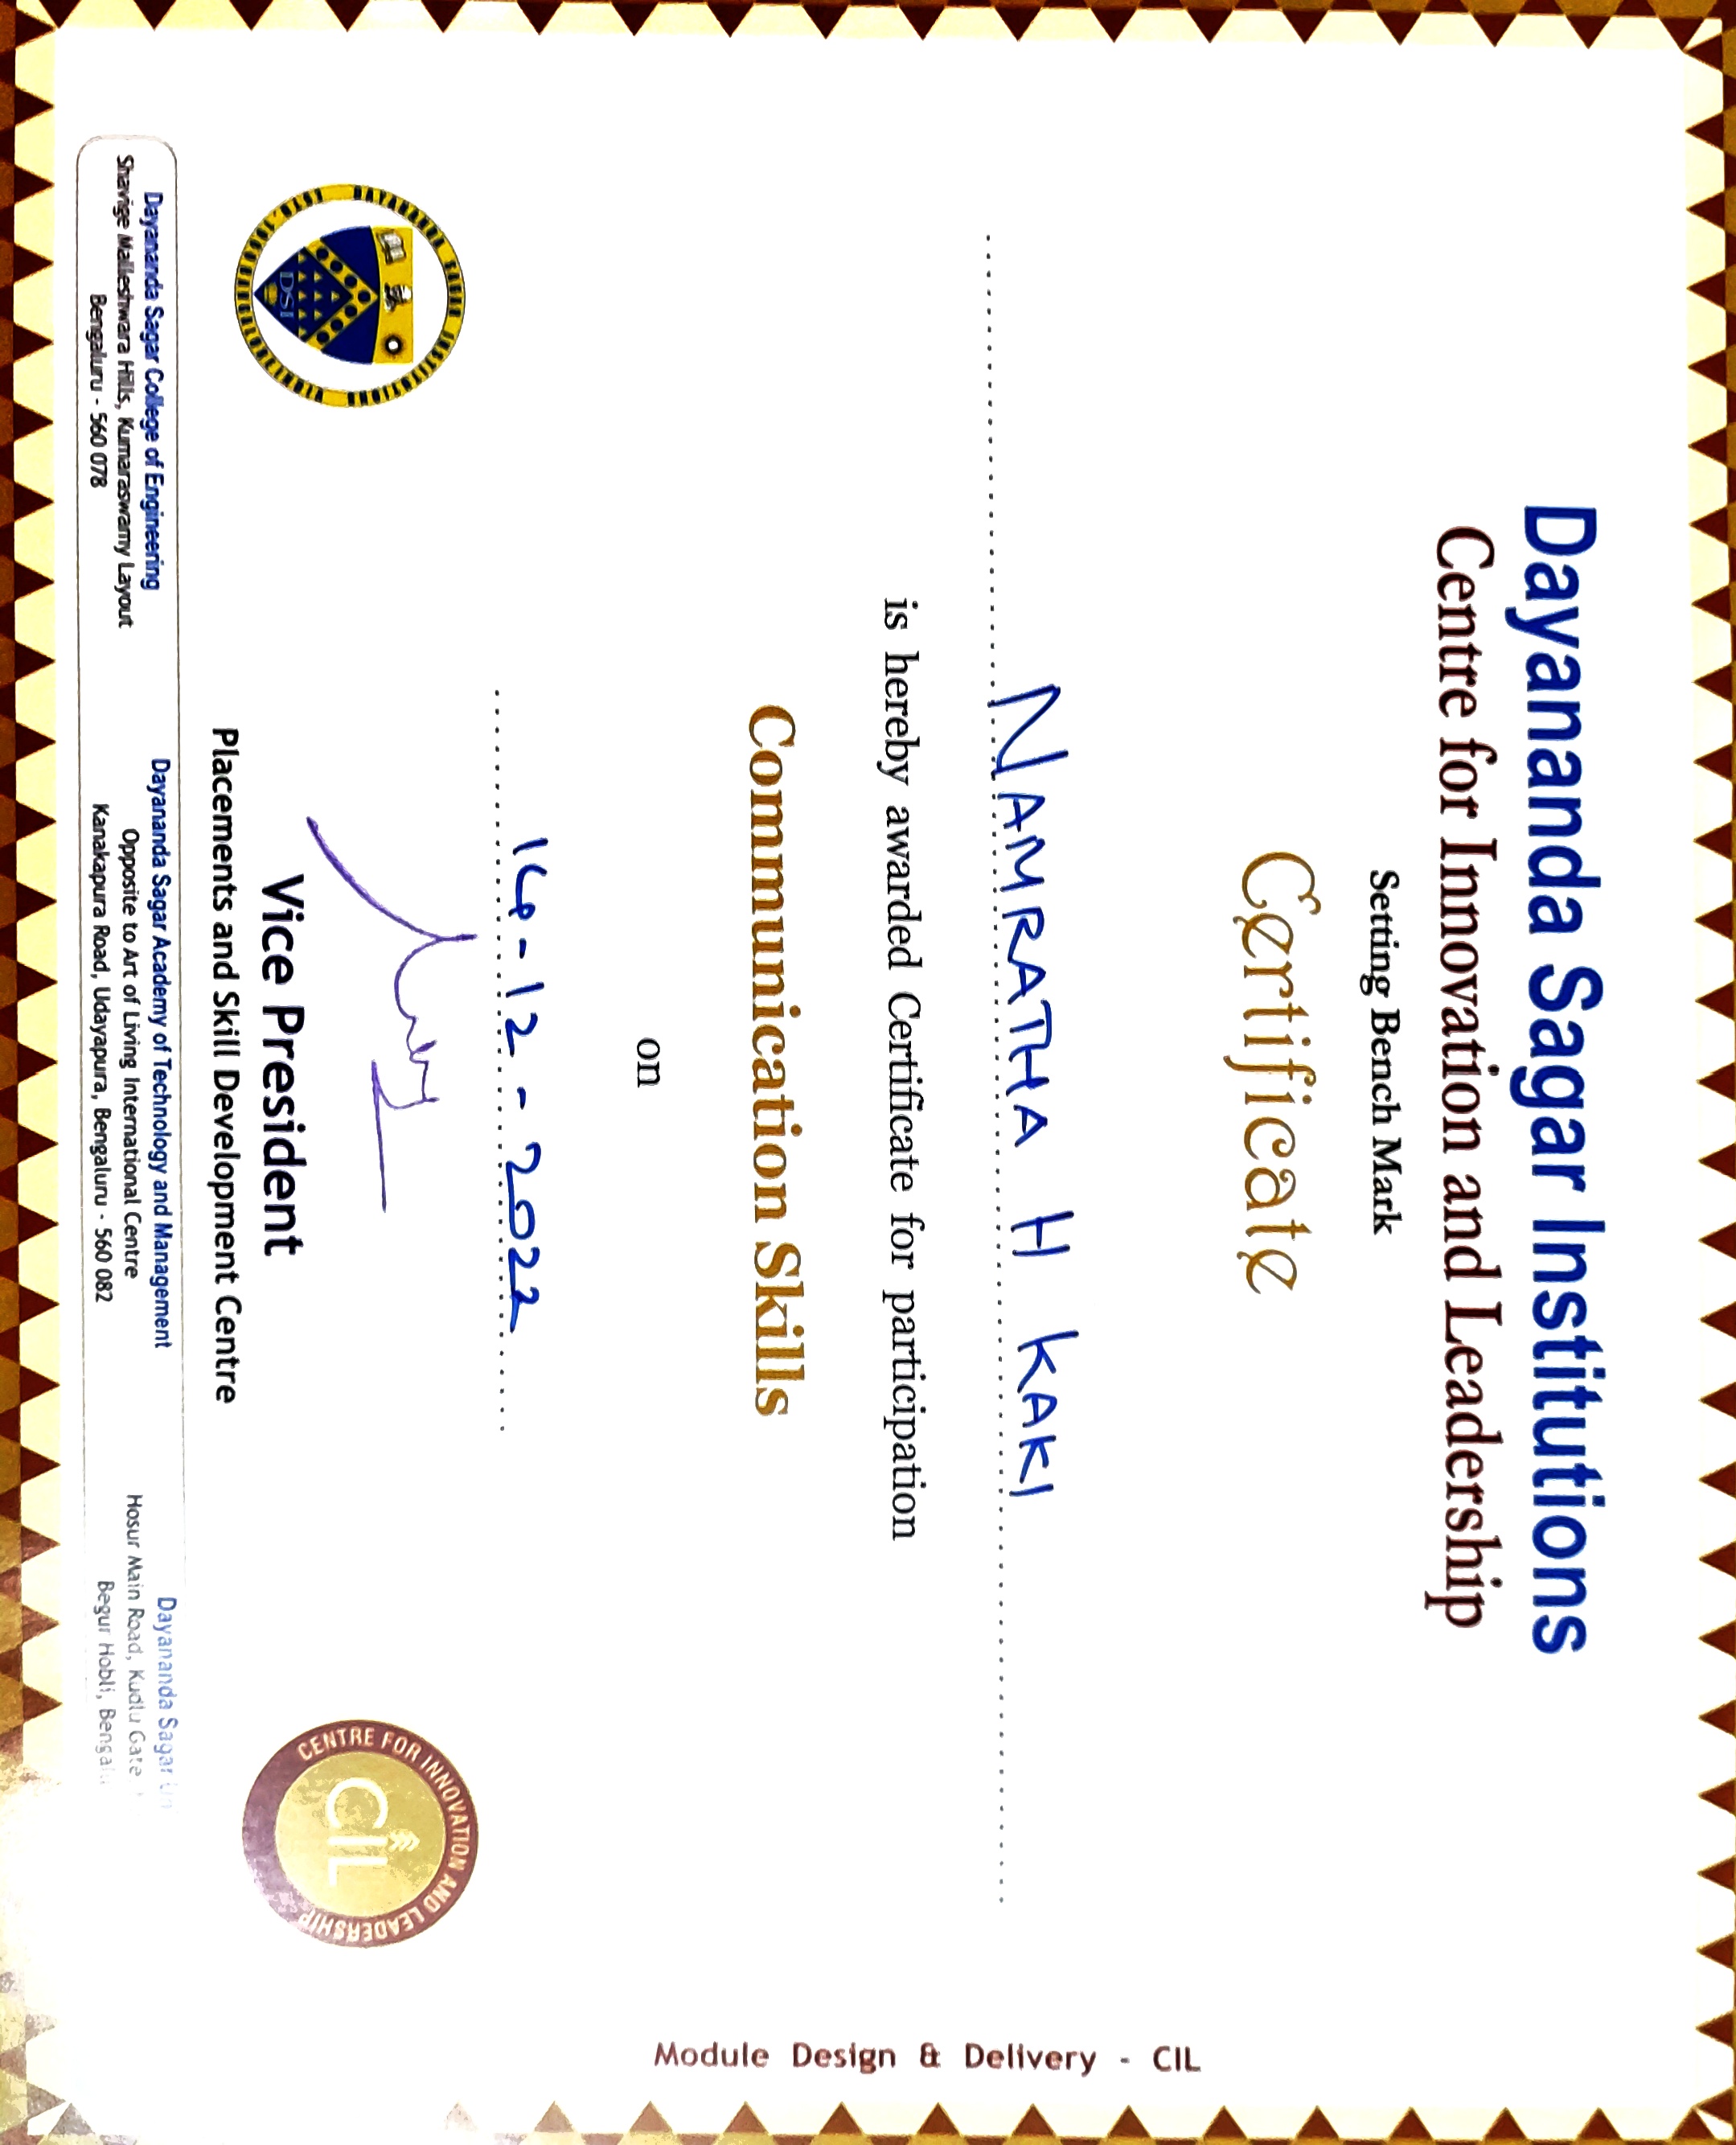 Dayananda Sagar Institutions
Centre for Innovation and Leadership
Setting Bench Mark
Certificate
NAMRATHA H KAKI
is hereby awarded Certificate for participation
Communication Skills
on
16-12-2022
Vice President
Placements and Skill Development Centre
DSI
CENTRE FOR INNOVATION AND LEADERSHIP
CIL
Dayananda Sagar College of Engineering
Shavige Malleshwara Hills, Kumaraswamy Layout
Bengaluru - 560 078
Dayananda Sagar Academy of Technology and Management
Opposite to Art of Living International Centre
Kanakapura Road, Udayapura, Bengaluru - 560 082
Dayananda Sagar
Hosur Main Road, Kudlu Gate
Begur Hobli,
Module Design & Delivery - CIL